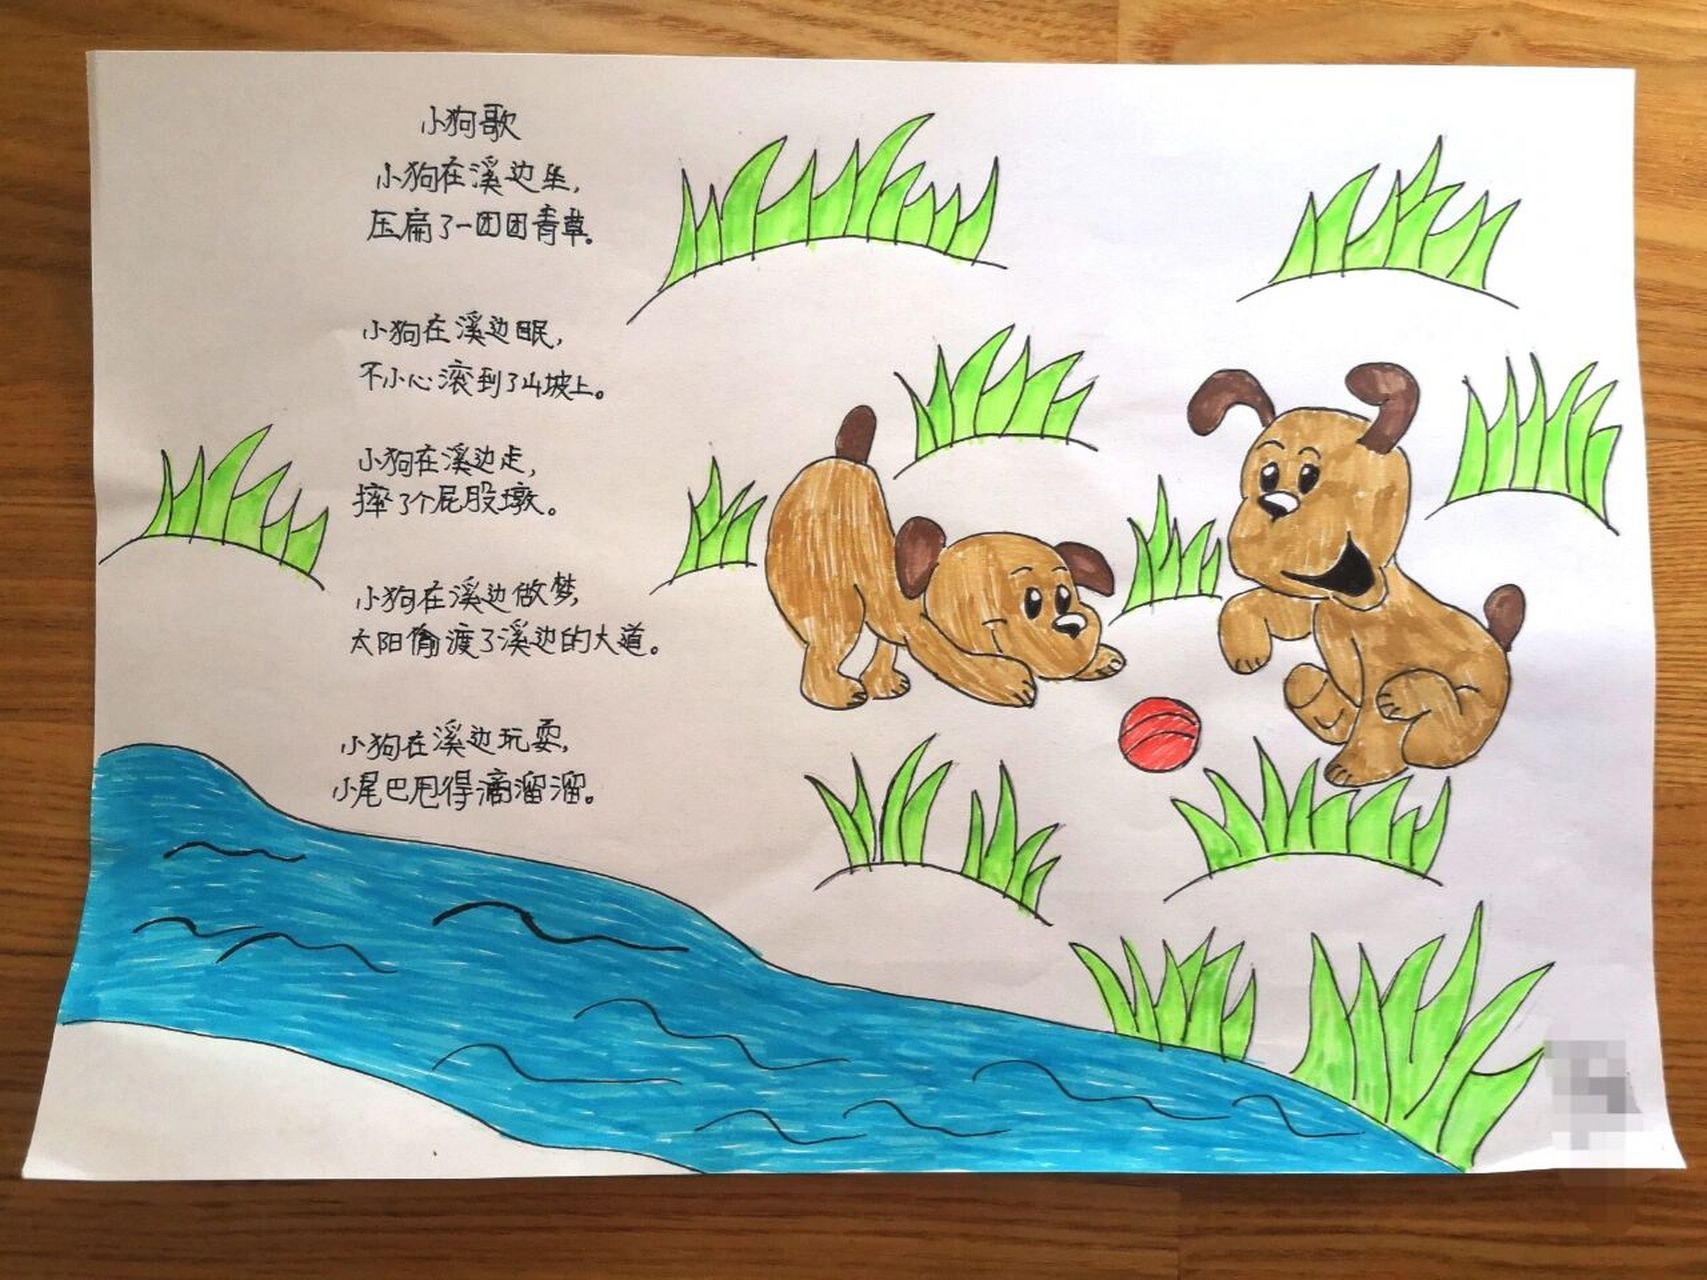 小狗歌
小狗在溪边坐,
压扁了一团团青草。
小狗在溪边眠,
不小心滚到了山坡上。
小狗在溪边走,
摔了个屁股墩。
小狗在溪边做梦,
太阳偷渡了溪边的大道。
小狗在溪边玩耍,
小尾巴甩得滴溜溜。